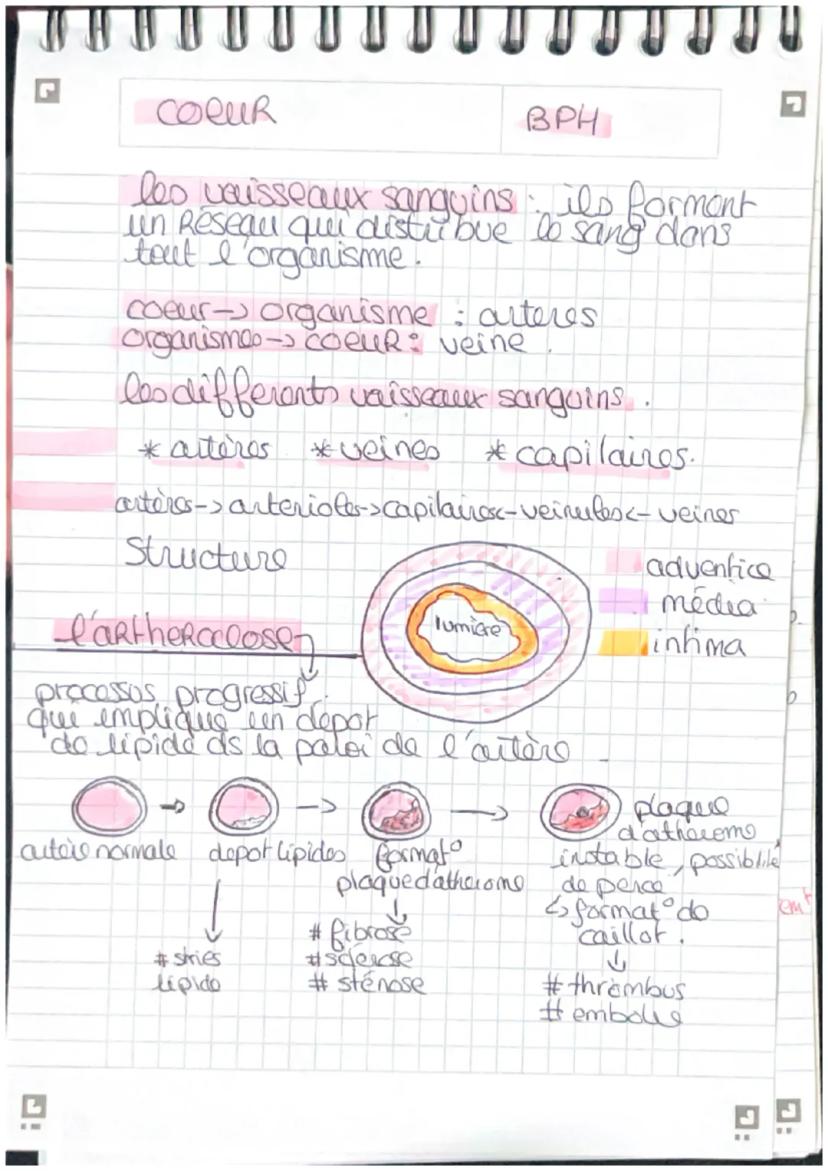 COEUR BPH
les vaisseaux sanguins : ils forment
un Réseau qui distribue le sang dans
tout l'organisme.
coeur -> organisme : arteres
organismes -> COEUR : veine.
les différents vaisseaux sanguins.
* artères * veines * capilaires.
artères -> arterioles -> capilaires <- veinules <- veines
Structure
adventice
média
intima
lumière
l'aRtheRoclose
processus progressif.
que implique un depot
de lipide ds la paroi de l'artère
artère normale
depot lipides
format°
plaque d'atherome
plaque
d'atherome
instable, possiblité
de perce
↳ format° de
caillot.
# stries
lipide
# fibrose
# sclérose
# sténose
# thrombus
# embolie
em